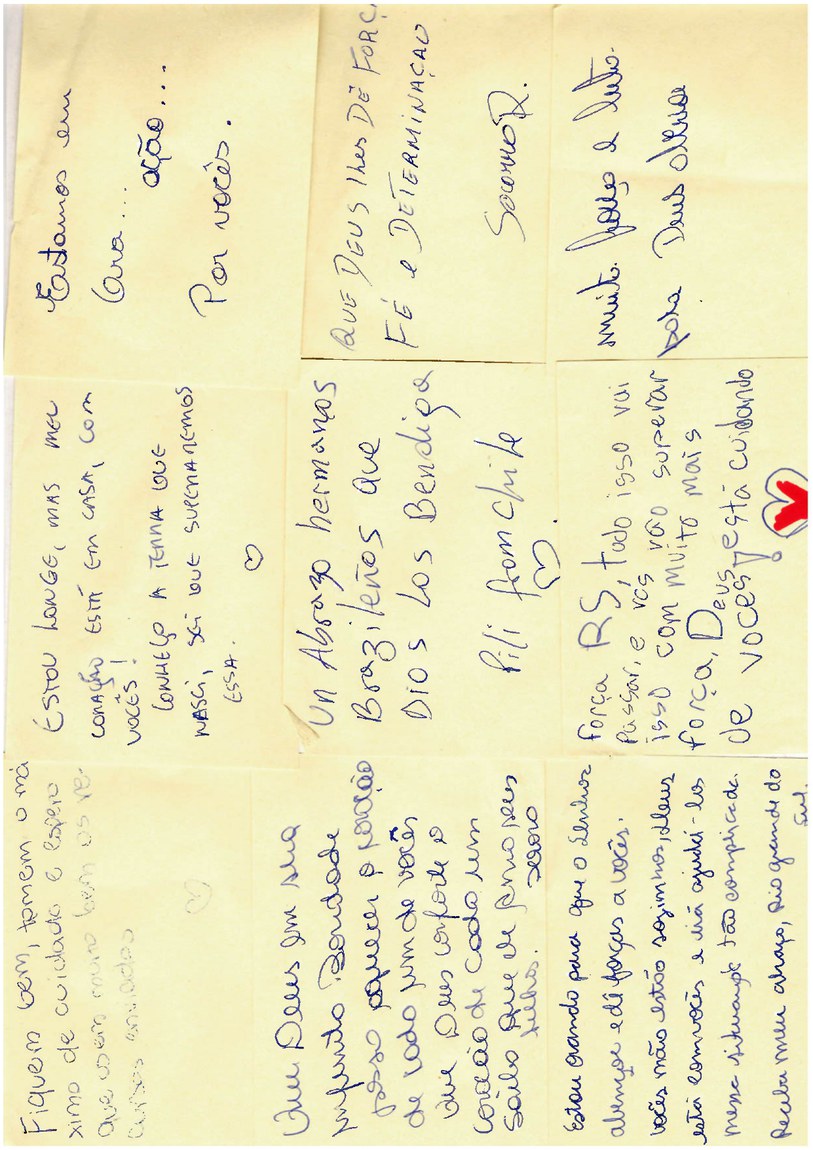 Fiquem bem, tomem o má
ximo de cuidado e espero
que usem muito bem os re-
cursos enviados
ESTOU LONGE, MAS MEU
CORAÇÃO ESTÁ EM CASA, COM
VOCÊS!
CONHEÇO A TERRA QUE
NASCI, SEI QUE SUPERAREMOS
ESSA.
Estamos em
Ora... ação...
Por vocês.
Que Deus em sua
infinita Bondade
possa aquecer o coração
de cada um de vocês
Que Deus conforte o
coração de cada um
Saiba que ele ama seus
filhos.
Un Abrazo hermanos
Brazileños que
Dios Los Bendiga
Pili from Chile
QUE DEUS lhes DÊ FORÇ
FÉ e DETERMINAÇÃO
SOCORRO R.
Estou orando para que o Senhor
abençoe e dê forças a vocês.
Vocês não estão sozinhos, Deus
está com vocês e irá ajudá-los
nessa situação tão complicada.
Receba meu abraço, Rio grande do
Sul.
Força RS, tudo isso vai
Passar, e vcs vão superar
isso com muito mais
força, Deus está cuidando
de vocês!
muita força e luto.
para Deus